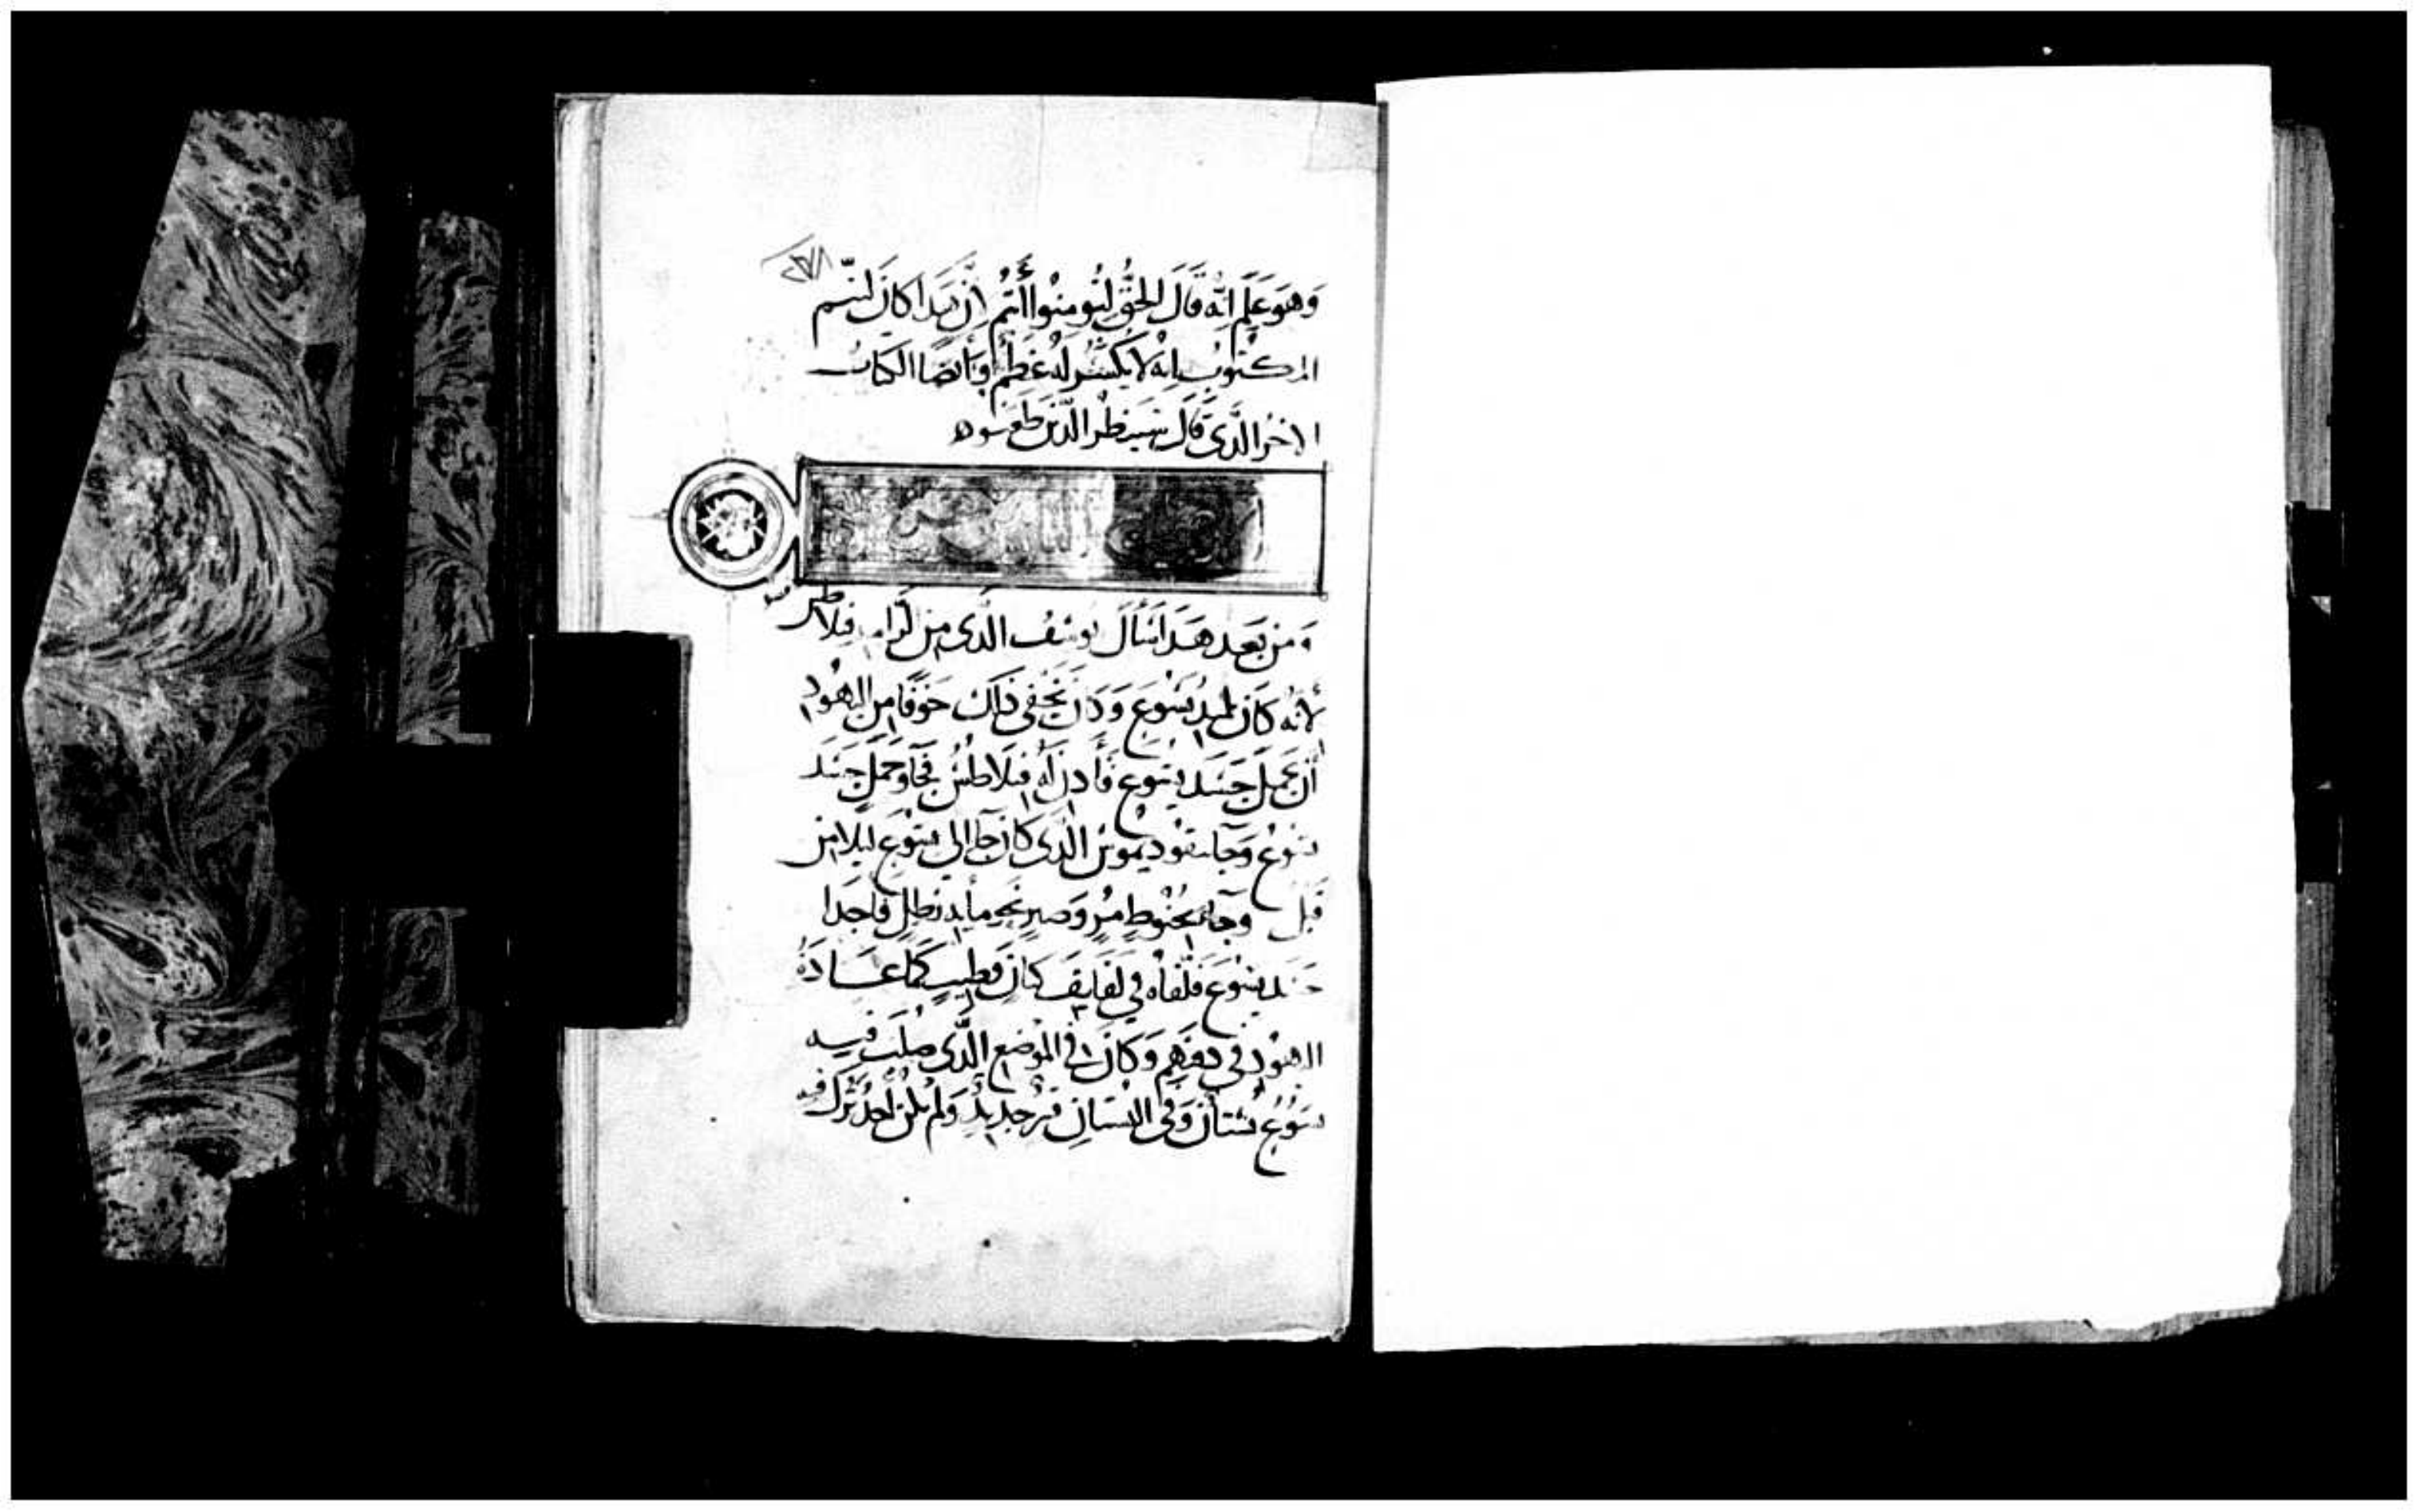 وَهُوَ عَلِمَ انّه قَالَ الحَقّ لتُومنُوا أَنتُم أنّ هَذا كَانَ ليتم
المكتوب انه لا يُكسَر لهُ عَظم وأيضًا الكتاب
الاخر الّذى قَالَ سَينظر الّذين طعنوه
وَمن بَعد هَدا سَأل يوسُف الّذى من الرامه فيلاطس
لأنّه كَانَ تلميد يَسُوع وَكان يُخفى ذلك خَوفًا من اليهُود
أن يَحمل جَسَد يسُوع فَأدن لهُ فيلاطس فجَا وحَمل جسَد
يسُوع وَجا نيقوديموس الّدى كَانَ جَا الى يسُوع ليلا من
قبل وجَا بحنُوط مُر وَصبر نحو مايه رطل فاخدا
جسد يسُوع فلفّاه في لفايف كتان وطيب كما عَادَة
اليهود في دفنهم وَكانَ في الموضع الّدى صُلب فيه
يسُوعُ بُستان وَفى البُستان قبر جَديد وَلم يكن أحد تُرك فيه